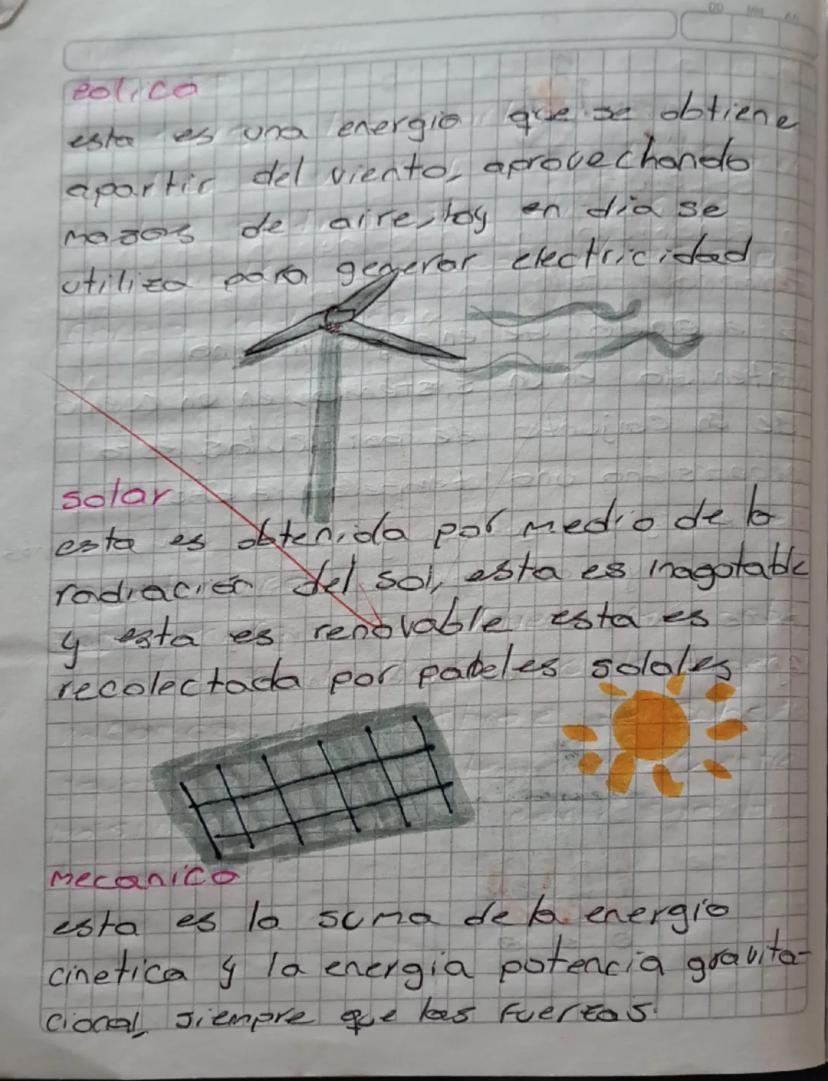 eolica
esta es una energia que se obtiene
apartir del viento, aprovechando
masas de aire, hoy en dia se
utiliza para generar electricidad
solar
esta es obtenida por medio de la
radiación del sol, esta es inagotable
y esta es renovable esta es
recolectada por paneles solales
mecanica
esta es la suma de la energia
cinetica y la energia potencia gravita-
cional, siempre que las fuerzas